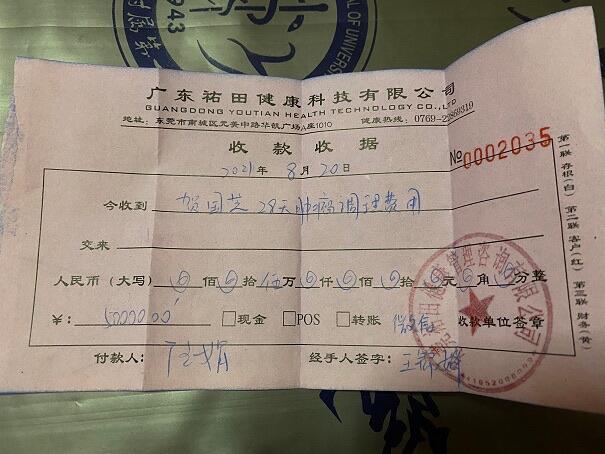 广东祐田健康科技有限公司
GUANGDONG YOUTIAN HEALTH TECHNOLOGY CO.,LTD
地址：东莞市南城区元美中路华凯广场A座1010 健康热线：0769-22869319
收款收据
No 0002035
2021年8月20日
今收到 贺国芝 28天肿病调理费用
交来
人民币（大写） 佰 拾伍万 仟 佰 拾 元 角 分整
¥： 50000.00 □现金 □POS □转账 微信 收款单位签章
付款人： 经手人签字：王
第一联 存根（白） 第二联 客户（红） 第三联 财务（黄）
祐田健康管理咨询有限公司
943
OF UNIVERS
附属第